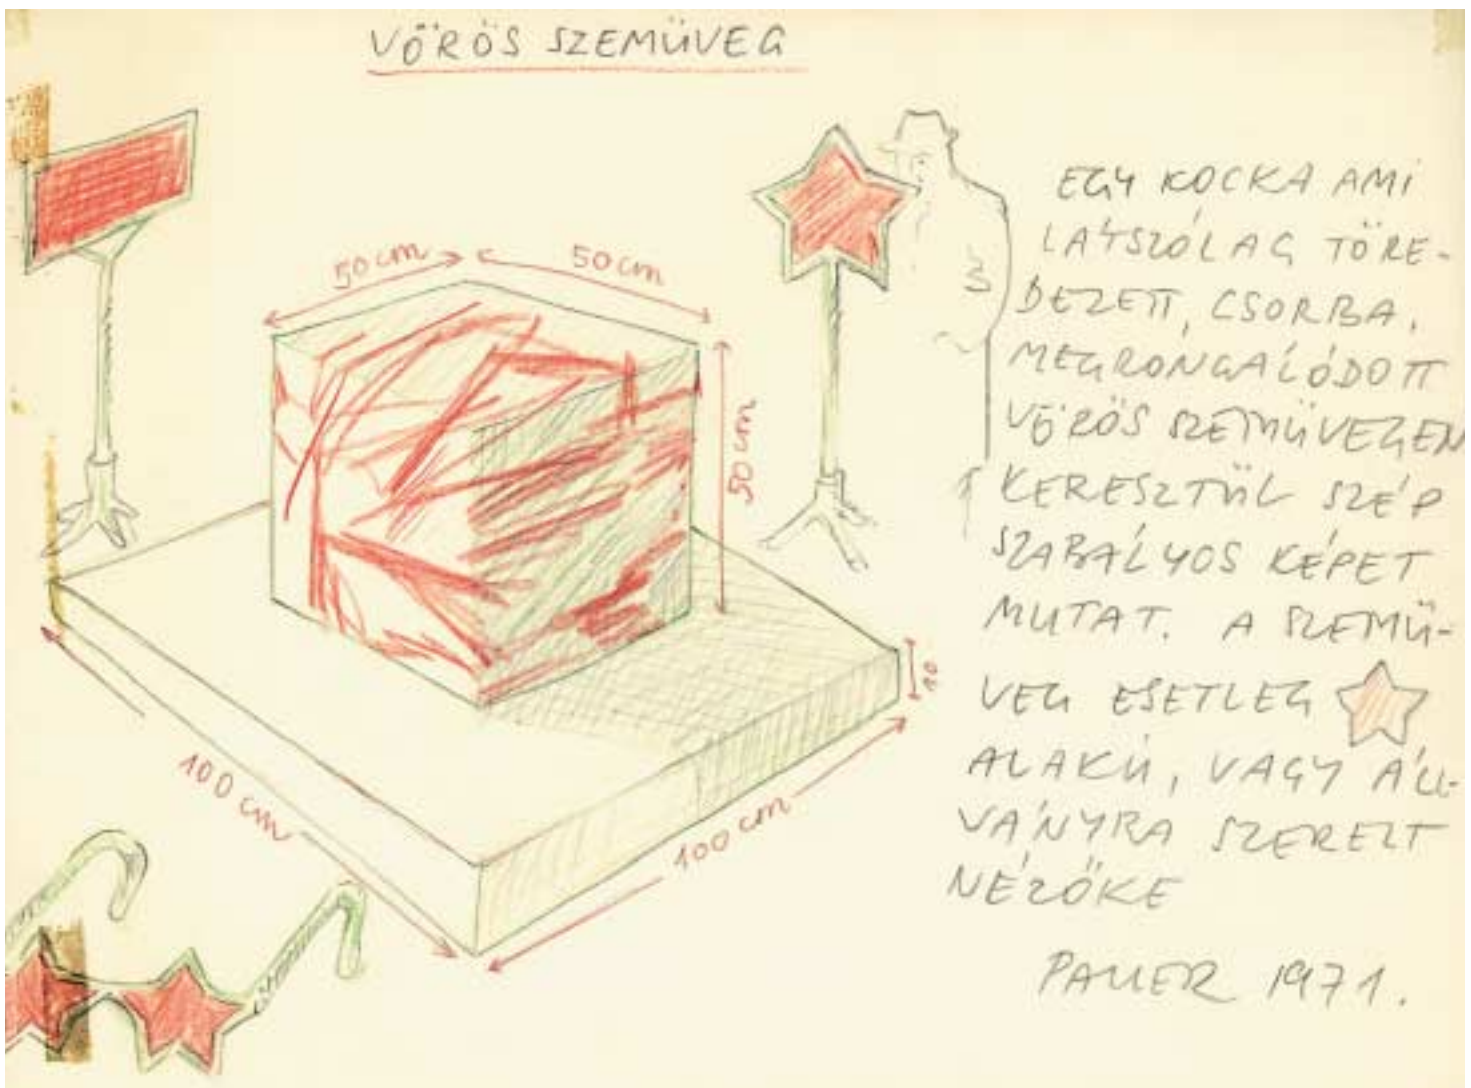 VÖRÖS SZEMÜVEG
50 cm
50 cm
50 cm
10
100 cm
100 cm
EGY KOCKA AMI
LÁTSZÓLAG TÖRE-
DEZETT, CSORBA,
MEGRONGÁLÓDOTT
VÖRÖS SZEMÜVEGEN
KERESZTÜL SZÉP
SZABÁLYOS KÉPET
MUTAT. A SZEMÜ-
VEG ESETLEG
ALAKÚ, VAGY ÁLL-
VÁNYRA SZERELT
NÉZŐKE
PAUER 1971.